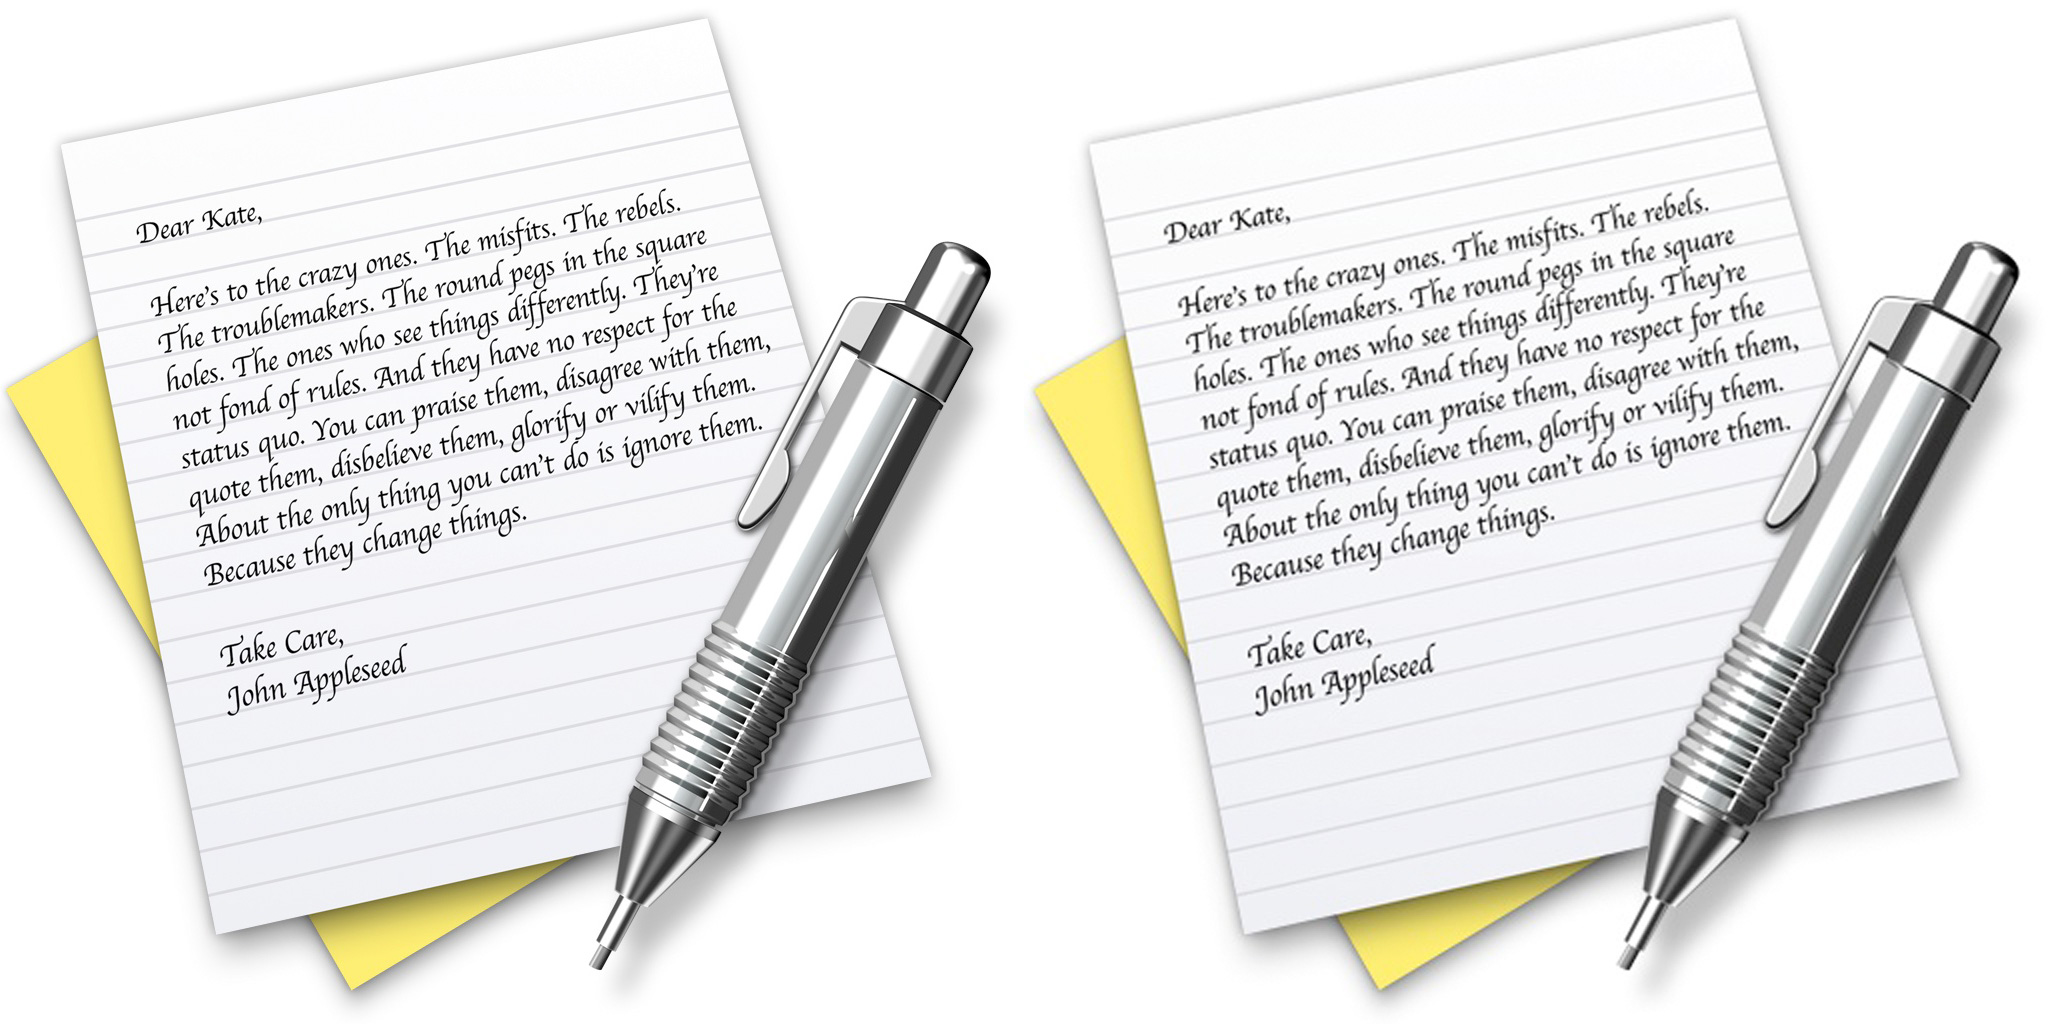 Dear Kate,
Here's to the crazy ones. The misfits. The rebels.
The troublemakers. The round pegs in the square
holes. The ones who see things differently. They're
not fond of rules. And they have no respect for the
status quo. You can praise them, disagree with them,
quote them, disbelieve them, glorify or vilify them.
About the only thing you can't do is ignore them.
Because they change things.
Take Care,
John Appleseed
Dear Kate,
Here's to the crazy ones. The misfits. The rebels.
The troublemakers. The round pegs in the square
holes. The ones who see things differently. They're
not fond of rules. And they have no respect for the
status quo. You can praise them, disagree with them,
quote them, disbelieve them, glorify or vilify them.
About the only thing you can't do is ignore them.
Because they change things.
Take Care,
John Appleseed